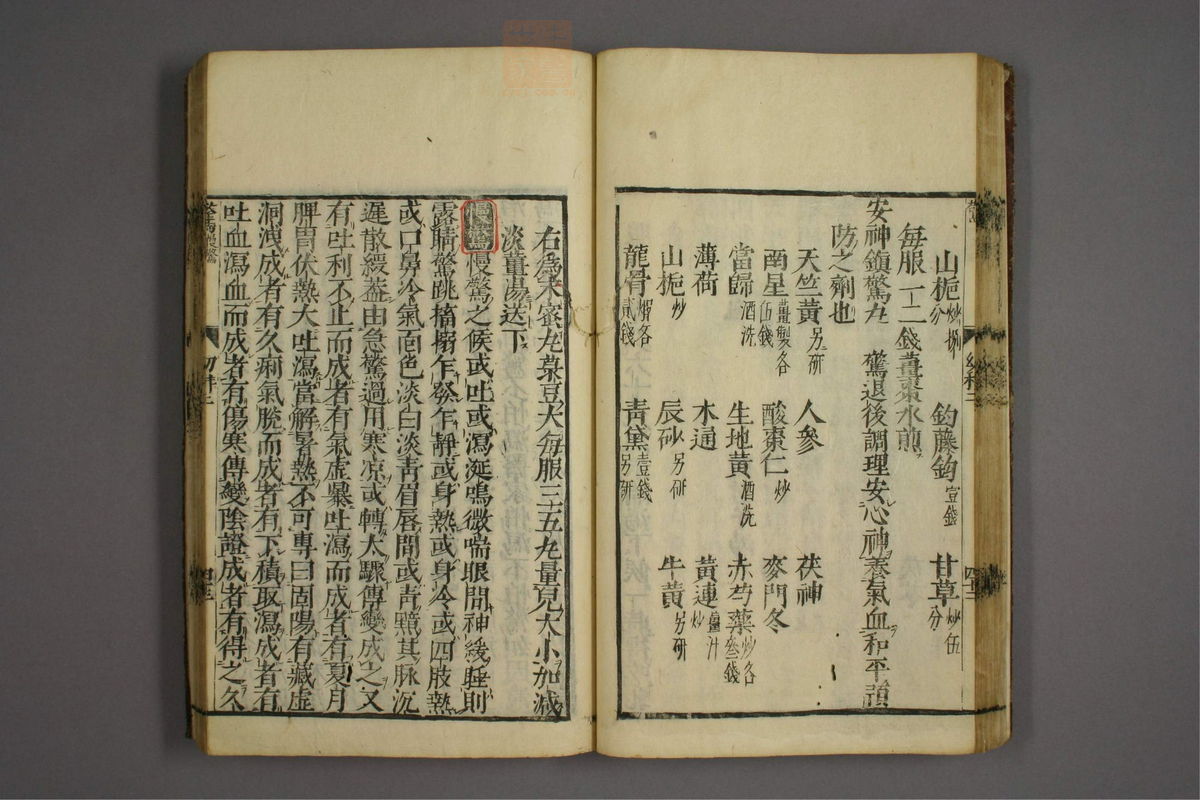 山梔炒 分 釣藤鈎壹錢 甘草炒伍分
每服一二錢薑棗水煎
安神鎮驚丸 驚退後調理安心神養氣血和平預
防之劑也
天竺黃另研 人參 茯神
南星薑製各伍錢 酸棗仁炒 麥門冬
當歸酒洗 生地黃酒洗 赤芍藥炒各叁錢
薄荷 木通 黃連薑汁炒
山梔炒 辰砂另研 牛黃另研
龍骨煆各貳錢 青黛壹錢另研
右爲末蜜丸菉豆大每服三五丸量兒大小加減
淡薑湯送下
慢驚 慢驚之候或吐或瀉涎鳴微喘眼開神緩睡則
露睛驚跳搐搦乍發乍靜或身熱或身冷或四肢熱
或口鼻冷氣面色淡白淡青眉唇間或青黯其脉沉
遲散緩蓋由急驚過用寒凉或轉太驟傳變成之又
有吐利不止而成者有氣虛暴吐瀉而成者有夏月
脾胃伏熱大吐瀉當解暑熱不可專曰固陽有臟虛
洞洩成者有久痢氣脫而成者有下積取瀉成者有
吐血瀉血而成者有傷寒傳變陰證成者有得之久